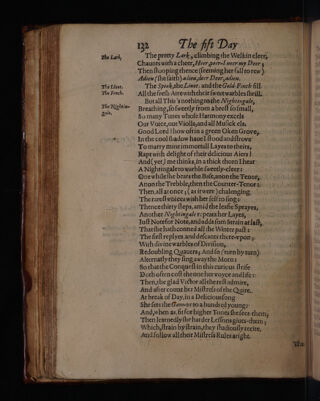 132 The fift Day
The Lark.
The pretty Lark, climbing the Welkin cleer,
Chaunts with a cheer, Heer peer-I neer my Deer;
Then stooping thence (seeming her fall to rew)
Adieu (she saith) adieu, deer Deer, adieu.
The Linot.
The Finch.
The Spink, the Linot, and the Gold-Finch fill
All the fresh Aire with their sweet warbles shrill.
The Nightin-
gale.
But all This 's nothing to the Nightingale,
Breathing, so sweetly from a brest so small,
So many Tunes whose Harmony excels
Our Voice, our Violls, and all Musick els.
Good Lord! how oft in a green Oken Grove,
In the cool shadow have I stood and strove
To marry mine immortall Layes to theirs,
Rapt with delight of their delicious Aiers!
And (yet) me thinks, in a thick thorn I hear
A Nightingale to warble sweetly-cleer:
One while she bears the Base, anon the Tenor,
Anon the Trebble, then the Counter-Tenor:
Then, all at once; (as it were) chalenging
The rarest voices with her self to sing:
Thence thirty steps, amid the leafie Sprayes,
Another Nightingale repeats her Layes,
Just Note for Note, and adds som strain at last,
That she hath conned all the Winter past:
The first replyes, and descants there-upon;
With divine warbles of Division,
Redoubling Quavers; And so (turn by turn)
Alternatly they sing away the Morn:
So that the Conquest in this curious strife
Doth often cost the one her voyce and life:
Then, the glad Victor all the rest admire,
And after count her Mistress of the Quire.
At break of Day, in a Delicious song
She sets the Gam-ut to a hundred young:
And, when as fit for higher Tunes she sees-them,
Then learnedly she harder Lessons gives-them;
Which, strain by strain, they studiously recite,
And follow all their Mistress Rules aright.